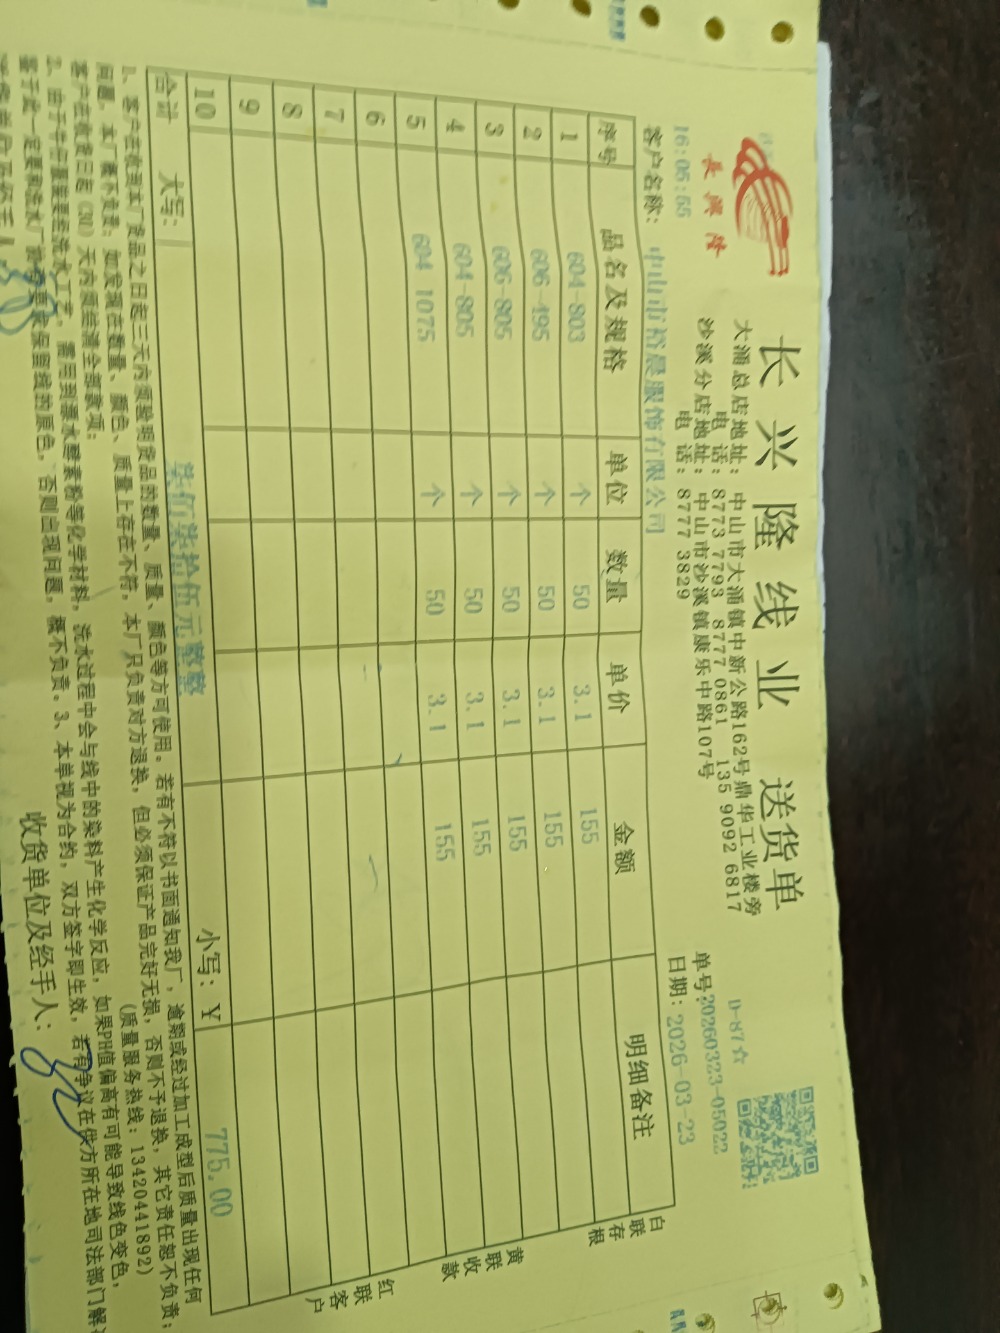 长兴隆线业 送货单
長興隆
大涌总店地址：中山市大涌镇中新公路162号鼎华工业楼旁
电 话：8773 7793 8777 0861 135 9092 6817
沙溪分店地址：中山市沙溪镇康乐中路107号
电 话：8777 3829
D-87☆
单号:20260323-05022
16:05:55
日期：2026-03-23
客户名称：中山市裕晨服饰有限公司
序号 品名及规格 单位 数量 单价 金额 明细备注
1 604-803 个 50 3.1 155
2 606-495 个 50 3.1 155
3 606-805 个 50 3.1 155
4 604-805 个 50 3.1 155
5 604 1075 个 50 3.1 155
6
7
8
9
10
合计 大写：柒佰柒拾伍元整 小写：￥ 775.00
白联存根
黄联收款
红联客户
1、客户在收到本厂货品之日起三天内须验明货品的数量、质量、颜色等方可使用。若有不符以书面通知我厂，逾期或经过加工成型后质量出现任何
问题，本厂概不负责；如发现在数量、颜色、质量上存在不符，本厂只负责对方退换，但必须保证产品完好无损，否则不予退换，其它责任恕不负责；
客户在收货日起（30）天内须结清全部款项；
（质量服务热线：13420441892）
2、由于牛仔服装要经洗水工序，需用到漂水酵素粉等化学材料，洗水过程中会与线中的染料产生化学反应，如果PH值偏高有可能导致线色变色，
鉴于此一定要和洗水厂 保留线的原色，否则出现问题，概不负责。3、本单视为合约，双方签字即生效，若有争议在供方所在地司法部门解
收货单位及经手人：